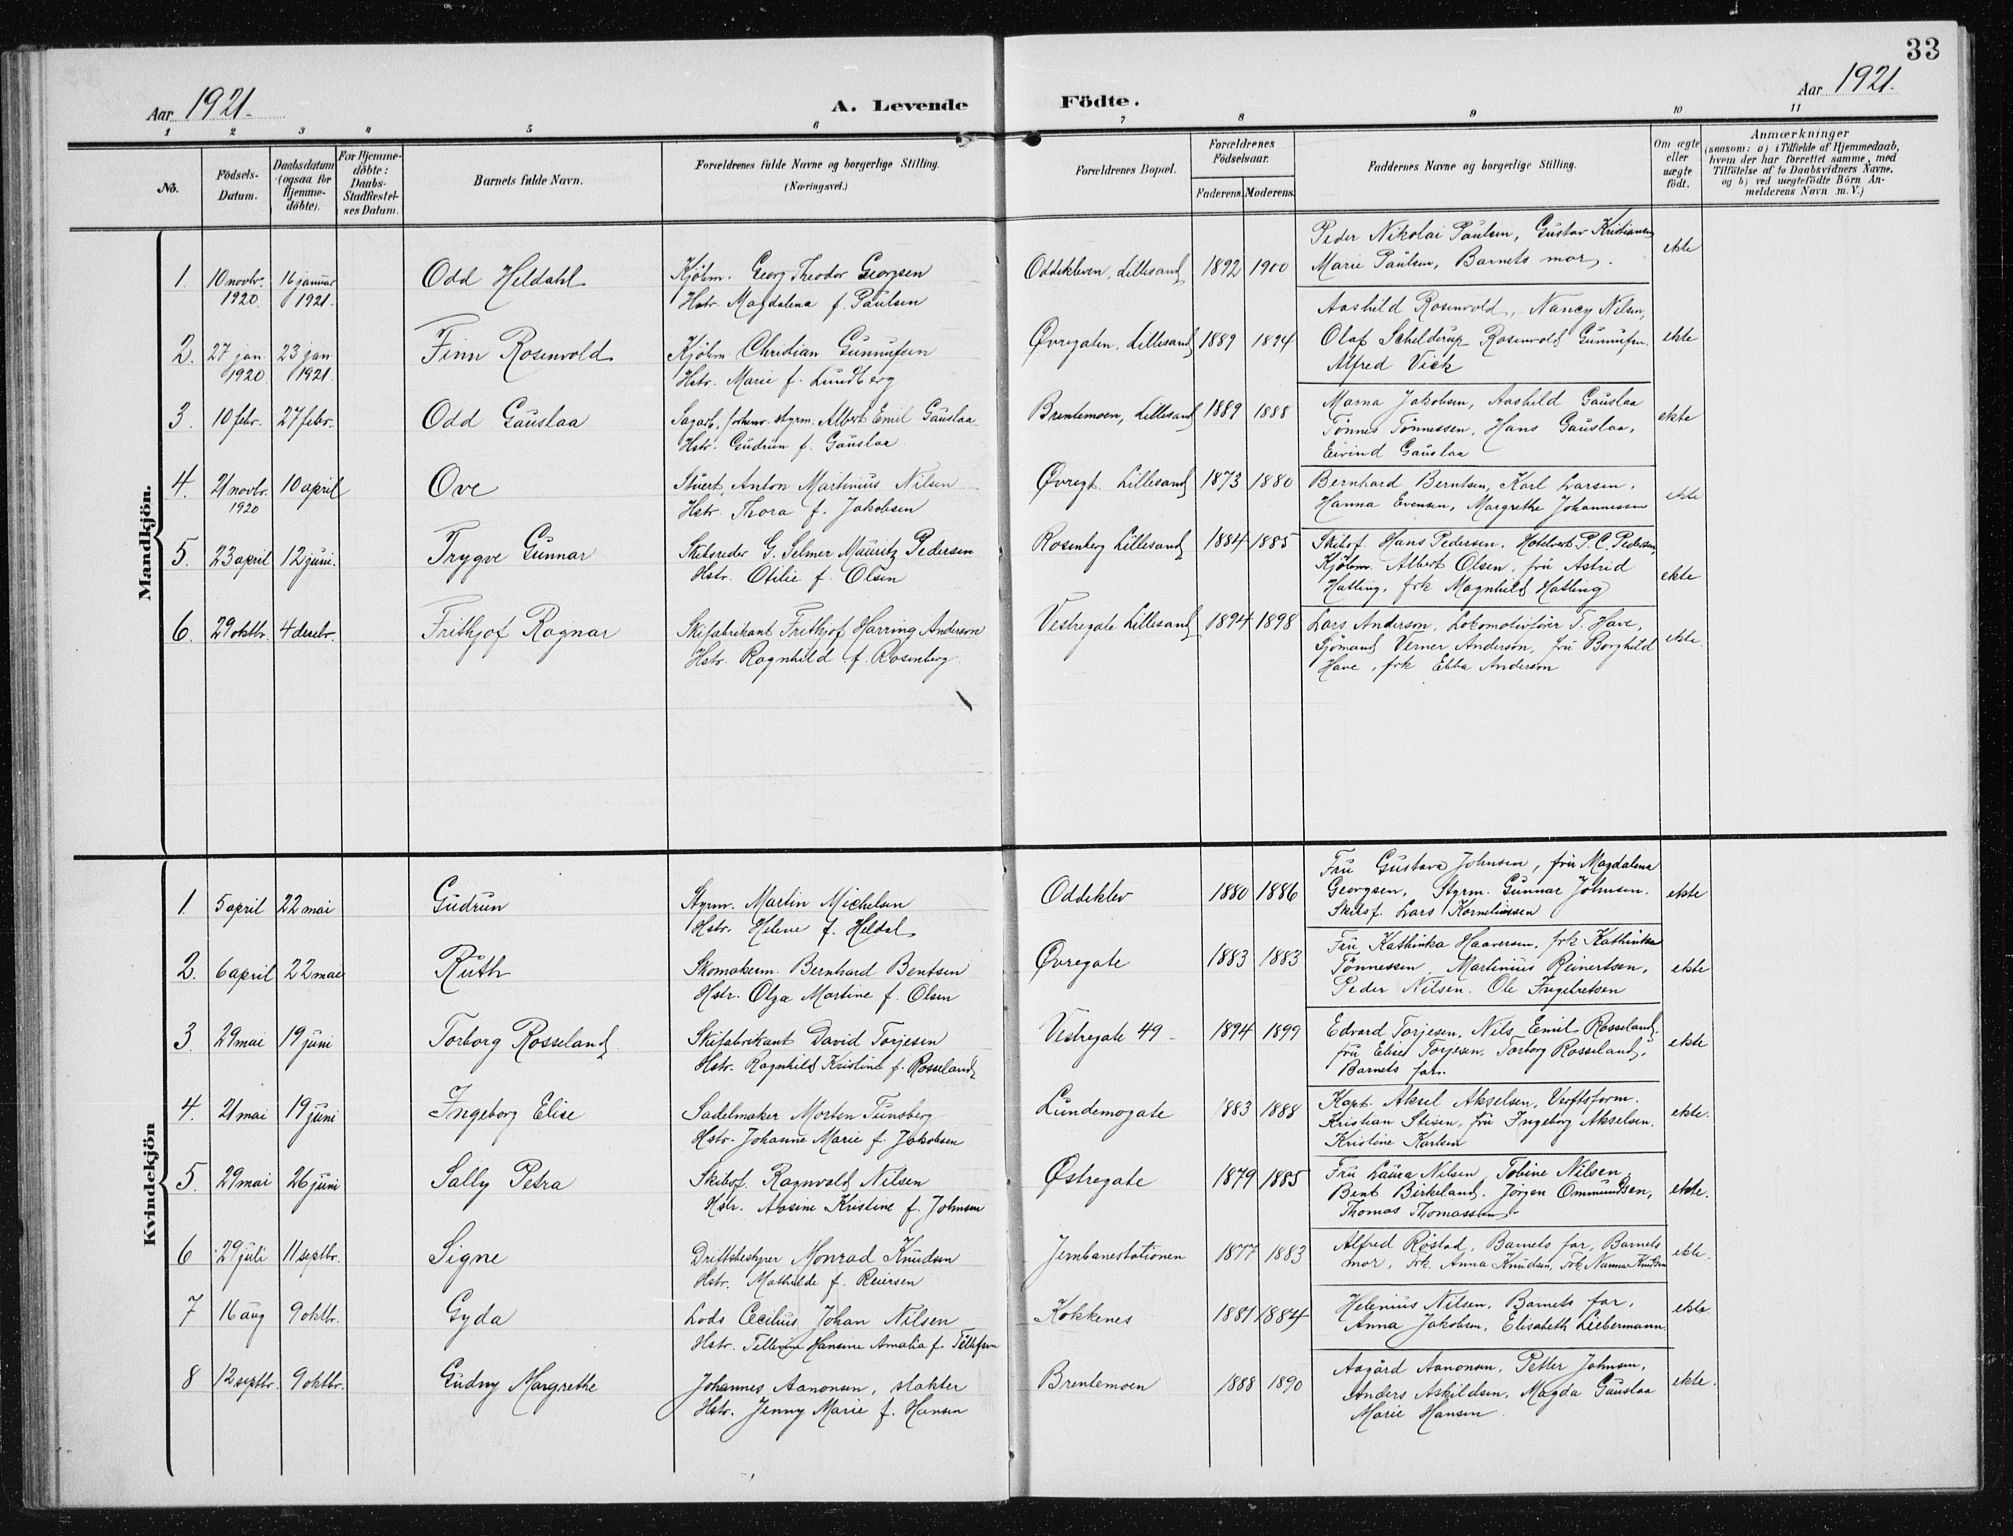 33
Aar 1921.
A. Levende Födte.
Aar 1921.
1 2 3 4 5 6 7 8 9 10 11
No.
Födsels-
Datum.
Daabsdatum
(ogsaa for
Hjemme-
döbte).
For Hjemme-
döbte:
Daabs-
Stadfæstel-
ses Datum.
Barnets fulde Navn.
Forældrenes fulde Navne og borgerlige Stilling.
(Næringsvei.)
Forældrenes Bopæl.
Forældrenes
Födselsaar.
Faderens. Moderens.
Faddernes Navne og borgerlige Stilling.
Om ægte
eller
uægte
födt.
Anmærkninger
(saasom: a) i Tilfælde af Hjemmedaab,
hvem der har forrettet samme, med
Tilföielse af to Daabsvidners Navne,
og b) ved uægtefödte Börn An-
melderens Navn m. V.)
Mandkjön.
1. 10 novbr. 1920 16 januar 1921. Odd Heldahl
Kjöbm. Georg Theodor Georgsen
Hstr. Magdalena f. Paulsen
Oddekleven, Lillesand 1892 1900
Peder Nikolai Paulsen, Gustav Kristiansen
Marie Paulsen, Barnets mor.
ekte
2. 27 jan. 1920 23 jan 1921. Finn Rosenvold
Kjöbm. Christian Gunnufsen
Hstr. Marie f. Lundberg
Øvregaten, Lillesand 1889 1894
Aashild Rosenvold, Nancy Nilsen,
Olaf Schelderup Rosenvold Gunnufsen.
Alfred Vick
ekte
3. 10 febr. 27 febr. Odd Gauslaa
Sagarb. forhenv. styrm. Albert Emil Gauslaa
Hstr. Gudrun f. Gauslaa
Brentemoen, Lillesand 1889 1888
Marna Jakobsen, Aashild Gauslaa
Tönnes Tönnessen, Hans Gauslaa,
Eivind Gauslaa
ekte
4. 21 novbr. 1920 10 april Ove
Stuert, Anton Martinius Nilsen
Hstr. Thora f. Jakobsen
Øvregt. Lillesand 1873 1880
Bernhard Berntsen, Karl Larsen,
Hanna Evensen, Margrethe Johannessen
ekte
5. 23 april 12 juni. Trygve Gunnar
Skibsreder G. Selmer Mauritz Pedersen
Hstr. Otilie f. Olsen
Rosenberg Lillesand 1884 1885
Skibsf. Hans Pedersen. Hotelvert P. C. Pedersen
Kjöbm. Albert Olsen, fru Astrid
Hatling, frk Magnhild Hatling
ekte
6. 29 oktbr. 4 desebr. Frithjof Ragnar
Skifabrikant Frithjof Harring Anderson
Hstr. Ragnhild f. Rosenberg
Vestregate Lillesand 1894 1898
Lars Anderson, Lokomotivförer T. Have,
Sjömand Verner Anderson, fru Borghild
Have, frk Ebba Anderson
ekte.
Kvindekjön
1. 5 april 22 mai Gudrun
Styrm. Martin Michelsen
Hstr. Helene f. Heldal
Oddeklev 1880 1886
Fru Gustava Johnsen, fru Magdalena
Georgsen, Styrm. Gunnar Johnsen.
Skibsf. Lars Korneliussen
ekte
2. 6 april 22 mai Ruth
Skomakerm. Bernhard Bentsen
Hstr. Olga Martine f. Olsen
Øvregate 1883 1883
Fru Kathinka Haaversen, frk Kathinka
Tönnessen, Martinius Reinertsen,
Peder Nilsen. Ole Ingebretsen
ekte
3. 29 mai 19 juni Torborg Rosseland
Skifabrikant David Torjesen
Hstr. Ragnhild Kristine f. Rosseland
Vestregate 49 1894 1899
Edvard Torjesen, Nils Emil Rosseland,
fru Elise Torjesen, Torborg Rosseland,
Barnets far.
ekte
4. 21 mai 19 juni Ingeborg Elise
Sadelmaker Morten Tunsberg
Hstr. Johanne Marie f. Jakobsen
Lundemogate 1883 1888
Kapt. Aksel Akselsen, Verftsform.
Kristian Stisen, fru Ingeborg Akselsen,
Kristine Karlsen
ekte.
5. 29 mai 26 juni Sally Petra
Skibsf. Ragnvald Nilsen
Hstr. Aasine Kristine f. Johnsen
Østregate 1879 1885
Fru Laura Nilsen, Tobine Nilsen,
Bent Birkeland, Jörgen Ommundsen,
Thomas Thomassen
ekte.
6 29 juli 11 septbr. Signe
Driftsbestyrer Monrad Knudsen
Hstr. Mathilde f. Reiersen
Jernbanestationen 1877 1883
Alfred Røstad, Barnets far, Barnets
mor, Frk. Anna Knudsen, Frk Nanna Knudsen
ekte.
7 16 aug 9 oktbr. Gyda
Lods Cecilius Johan Nilsen
Hstr. Tellevine Hansine Amalia f. Tellefsen
Kokkenes 1881 1884
Helenius Nilsen, Barnets far,
Anna Jakobsen, Elisabeth Liebermann
ekte
8 12 septbr. 9 oktbr. Gudny Margrethe
Johannes Aanonsen, slakter
Hstr. Jenny Marie f. Hansen
Brentemoen 1888 1890
Aagård Aanonsen, Petter Johnsen,
Anders Askildsen, Magda Gauslaa
Marie Hansen.
ekte.